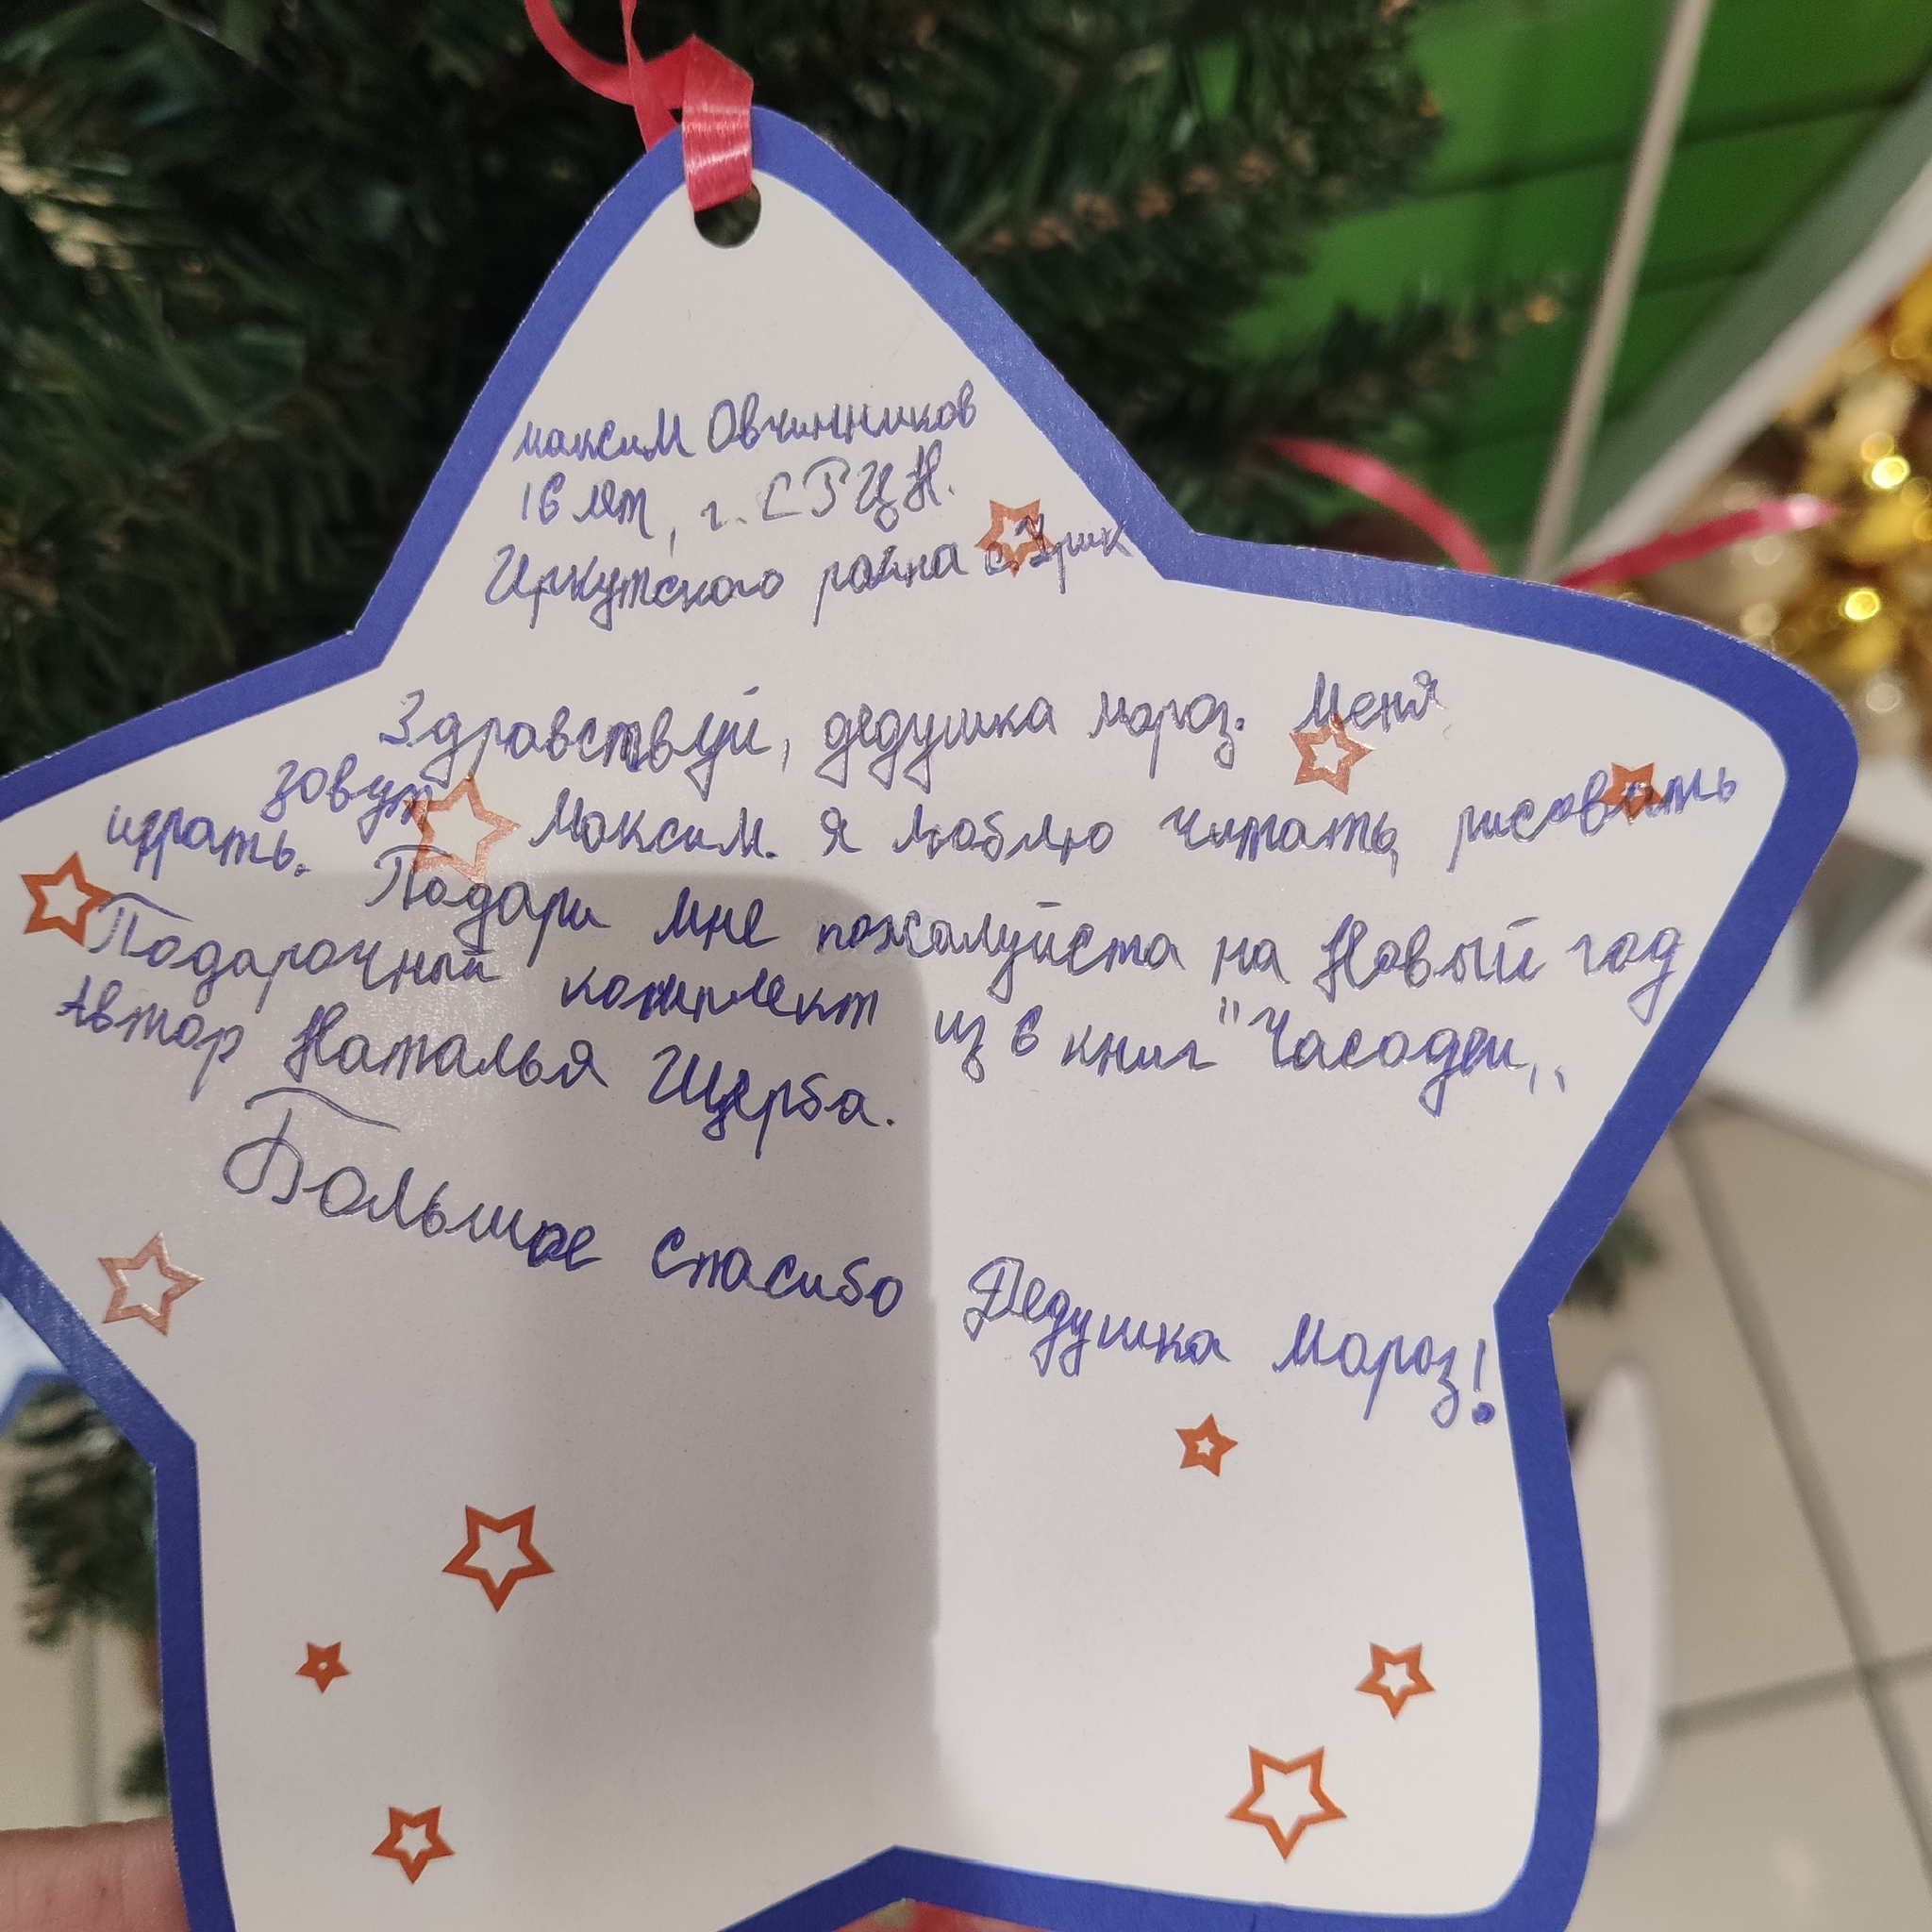 максим Овчинников
16 лет, г. СРЦН.
Иркутского райна с. Урик
Здравствуй, дедушка мороз. Меня
зовут Максим. Я люблю читать, рисовать
играть. Подари мне пожалуйста на Новый год
Подарочный комплект из 6 книг "Часодеи,,
Автор Наталья Щерба.
Большое спасибо Дедушка Мороз!